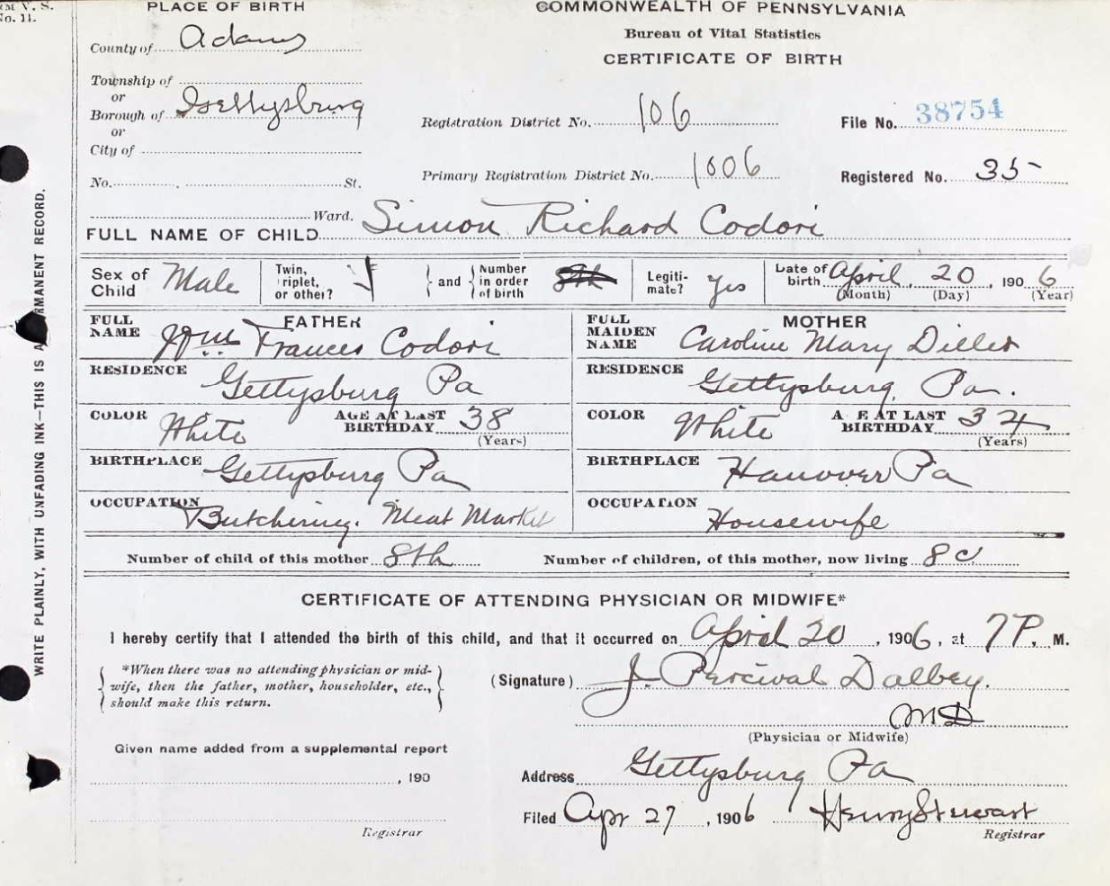 RM V. S.
No. 11.
PLACE OF BIRTH
County of Adams
Township of
or
Borough of Gettysburg
or
City of
No. St.
Ward.
COMMONWEALTH OF PENNSYLVANIA
Bureau of Vital Statistics
CERTIFICATE OF BIRTH
Registration District No. 106
File No. 38754
Primary Registration District No. 1006
Registered No. 35
FULL NAME OF CHILD Simon Richard Codori
Sex of Child Male
Twin, triplet, or other?
and
Number in order of birth 8th
Legitimate? yes
Date of birth April 20 1906
(Month) (Day) (Year)
FATHER
FULL NAME Wm Frances Codori
RESIDENCE Gettysburg Pa
COLOR White
AGE AT LAST BIRTHDAY 38
(Years)
BIRTHPLACE Gettysburg Pa
OCCUPATION Butchering. Meat Market
MOTHER
FULL MAIDEN NAME Caroline Mary Diller
RESIDENCE Gettysburg, Pa.
COLOR White
A E AT LAST BIRTHDAY 34
(Years)
BIRTHPLACE Hanover Pa
OCCUPATION Housewife
Number of child of this mother 8th
Number of children, of this mother, now living 8
CERTIFICATE OF ATTENDING PHYSICIAN OR MIDWIFE*
I hereby certify that I attended the birth of this child, and that it occurred on April 20, 1906, at 7 P. M.
*When there was no attending physician or mid-
wife, then the father, mother, householder, etc.,
should make this return.
(Signature) J. Percival Dalbey.
MD
(Physician or Midwife)
Given name added from a supplemental report
, 190
Registrar
Address Gettysburg Pa
Filed Apr 27, 1906 Henry Stewart
Registrar
WRITE PLAINLY, WITH UNFADING INK—THIS IS A PERMANENT RECORD.